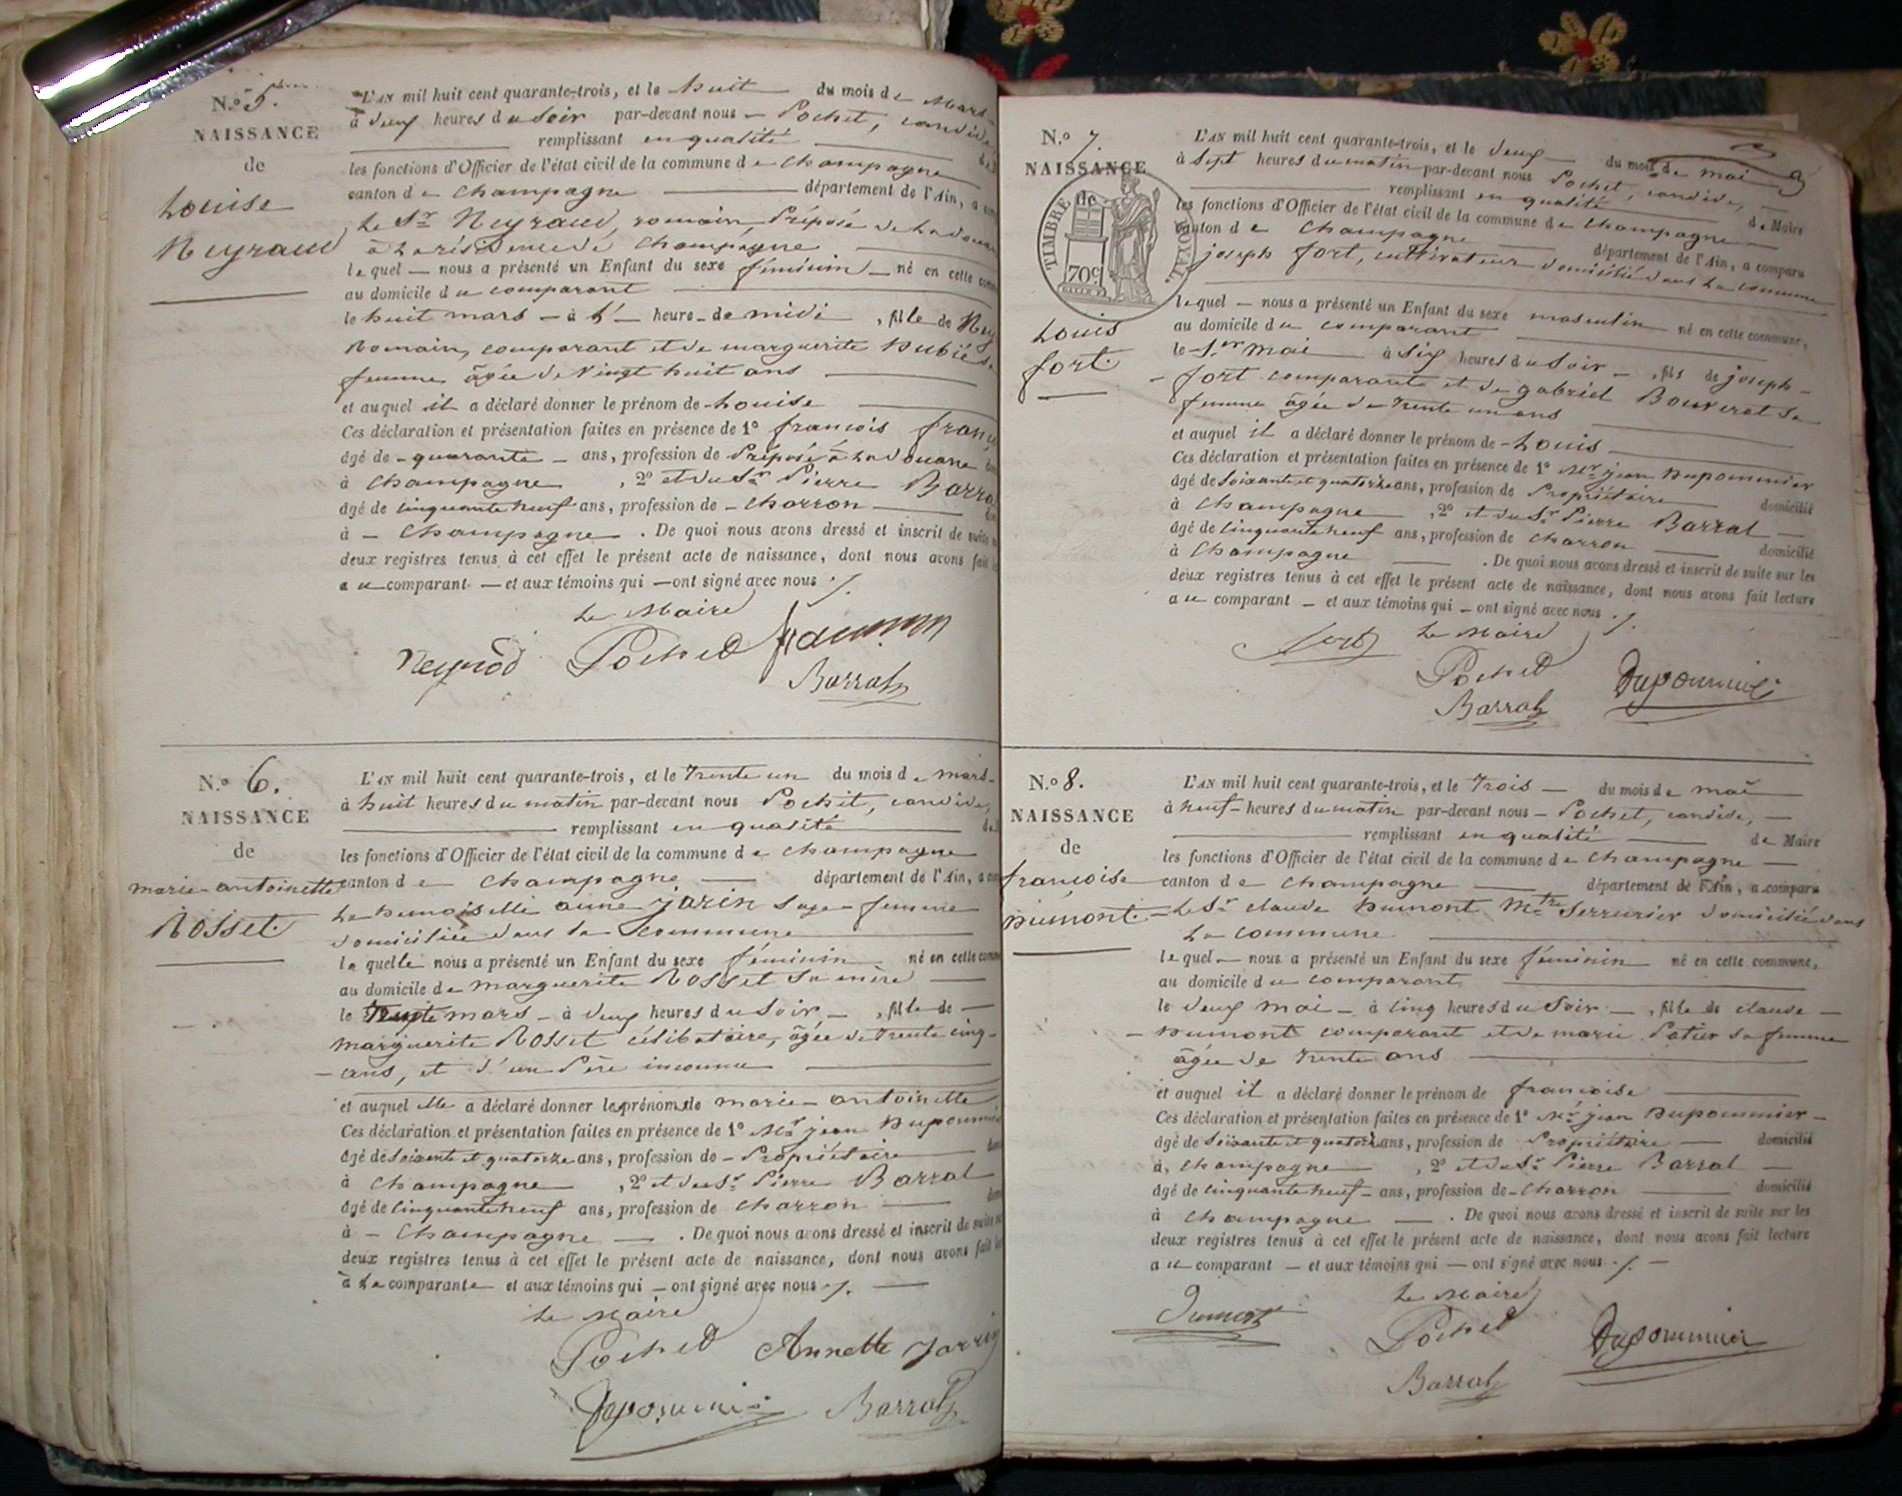 N.o 5.
NAISSANCE
de
Louise
Neyraud
L'AN mil huit cent quarante-trois, et le huit du mois de Mars
à deux heures du soir par-devant nous Pochet, candide,
remplissant en qualité
les fonctions d'Officier de l'état civil de la commune de Champagne
canton de Champagne département de l'Ain, a
Le Sr Neyraud, romain, Préposé de la douane
à la résidence de Champagne
lequel nous a présenté un Enfant du sexe féminin né en cette
au domicile du comparant
le huit mars à 1' heure de midi, fille de
Romain, comparant et de marguerite
femme âgée de vingt huit ans
et auquel il a déclaré donner le prénom de Louise
Ces déclaration et présentation faites en présence de 1° françois
âgé de quarante ans, profession de Préposé à la douane
à Champagne, 2° et du Sr Pierre Barral
âgé de cinquante neuf ans, profession de charron
à Champagne. De quoi nous avons dressé et inscrit de suite
deux registres tenus à cet effet le présent acte de naissance, dont nous avons fait
au comparant et aux témoins qui ont signé avec nous ./.
Le Maire
Pochet
Barral
N.o 6.
NAISSANCE
de
marie-antoinette
Rosset
L'AN mil huit cent quarante-trois, et le trente un du mois de mars
à huit heures du matin par-devant nous Pochet, candide,
remplissant en qualité
les fonctions d'Officier de l'état civil de la commune de Champagne
canton de Champagne département de l'Ain, a
La Demoiselle anne jarin sage-femme
domiciliée dans la commune
laquelle nous a présenté un Enfant du sexe féminin né en cette
au domicile de marguerite Rosset sa mère
le trente mars à deux heures du soir, fille de
marguerite Rosset célibataire, âgée de trente cinq
ans, et d'un Père inconnu
et auquel elle a déclaré donner les prénoms de marie-antoinette
Ces déclaration et présentation faites en présence de 1° Mr jean Dupommier
âgé de soixante et quatorze ans, profession de Propriétaire
à Champagne, 2° et du Sr Pierre Barral
âgé de cinquante neuf ans, profession de charron
à Champagne. De quoi nous avons dressé et inscrit de suite
deux registres tenus à cet effet le présent acte de naissance, dont nous avons fait
à la comparante et aux témoins qui ont signé avec nous ./.
Le Maire
Pochet Annette Jarrin
Dupommier Barral
N.o 7.
NAISSANCE
TIMBRE ROYAL
70c
Louis
fort
L'AN mil huit cent quarante-trois, et le deux du mois de mai
à sept heures du matin par-devant nous Pochet, candide,
remplissant en qualité de Maire
les fonctions d'Officier de l'état civil de la commune de Champagne
canton de Champagne département de l'Ain, a comparu
joseph fort, cultivateur domicilié dans la commune
lequel nous a présenté un Enfant du sexe masculin né en cette commune,
au domicile du comparant
le 1.er mai à six heures du soir, fils de joseph
fort comparante et de gabriel Bouveret sa
femme âgée de trente un ans
et auquel il a déclaré donner le prénom de Louis
Ces déclaration et présentation faites en présence de 1° Mr jean Dupommier
âgé de soixante et quatorze ans, profession de Propriétaire domicilié
à Champagne, 2° et du Sr Pierre Barral
âgé de cinquante neuf ans, profession de charron domicilié
à Champagne. De quoi nous avons dressé et inscrit de suite sur les
deux registres tenus à cet effet le présent acte de naissance, dont nous avons fait lecture
au comparant et aux témoins qui ont signé avec nous ./.
fort Le Maire
Pochet Dupommier
Barral
N.o 8.
NAISSANCE
de
françoise
Dumont
L'AN mil huit cent quarante-trois, et le trois du mois de mai
à neuf heures du matin par-devant nous Pochet, candide,
remplissant en qualité de Maire
les fonctions d'Officier de l'état civil de la commune de Champagne
canton de Champagne département de l'Ain, a comparu
Le Sr claude Dumont Mtre Serrurier domicilié dans
la commune
lequel nous a présenté un Enfant du sexe féminin né en cette commune,
au domicile du comparant
le deux mai à cinq heures du soir, fille de claude
Dumont comparant et de marie Potier sa femme
âgée de trente ans
et auquel il a déclaré donner le prénom de françoise
Ces déclaration et présentation faites en présence de 1° Mr jean Dupommier
âgé de soixante et quatorze ans, profession de Propriétaire domicilié
à Champagne, 2° et du Sr Pierre Barral
âgé de cinquante neuf ans, profession de charron domicilié
à Champagne. De quoi nous avons dressé et inscrit de suite sur les
deux registres tenus à cet effet le présent acte de naissance, dont nous avons fait lecture
au comparant et aux témoins qui ont signé avec nous ./.
Dumont Le Maire
Pochet Dupommier
Barral